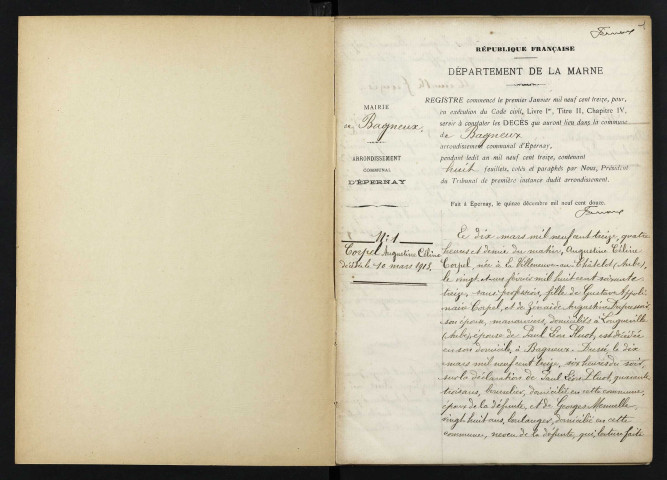 1
RÉPUBLIQUE FRANÇAISE
DÉPARTEMENT DE LA MARNE
MAIRIE
de Bagneux
ARRONDISSEMENT
COMMUNAL
D'ÉPERNAY
REGISTRE commencé le premier Janvier mil neuf cent treize, pour,
en exécution du Code civil, Livre Ier, Titre II, Chapitre IV,
servir à constater les DÉCÈS qui auront lieu dans la commune
de Bagneux
arrondissement communal d'Épernay,
pendant ledit an mil neuf cent treize, contenant
huit feuillets, cotés et paraphés par Nous, Président
du Tribunal de première instance dudit arrondissement.
Fait à Epernay, le quinze décembre mil neuf cent douze.
N° 1
Corpel Augustine Céline
décédée le 10 mars 1913.
Le dix mars mil neuf cent treize, quatre
heures et demie du matin, Augustine Céline
Corpel, née à La Villeneuve-au-Châtelot, (Aube),
le vingt et un février mil huit cent soixante
treize, sans profession, fille de Gustave
Corpel, et de Zénaïde Augustine
son épouse, manouvriers, domiciliés à Longueville
(Aube), épouse de Paul Léon Huot, est décédée
en son domicile, à Bagneux. Dressé le dix
mars mil neuf cent treize, six heures du soir,
sur la déclaration de Paul Léon Huot, quarante
ans, domicilié en cette commune,
époux de la défunte, et de Georges
vingt huit ans, boulanger, domicilié en cette
commune, neveu de la défunte, qui, lecture faite